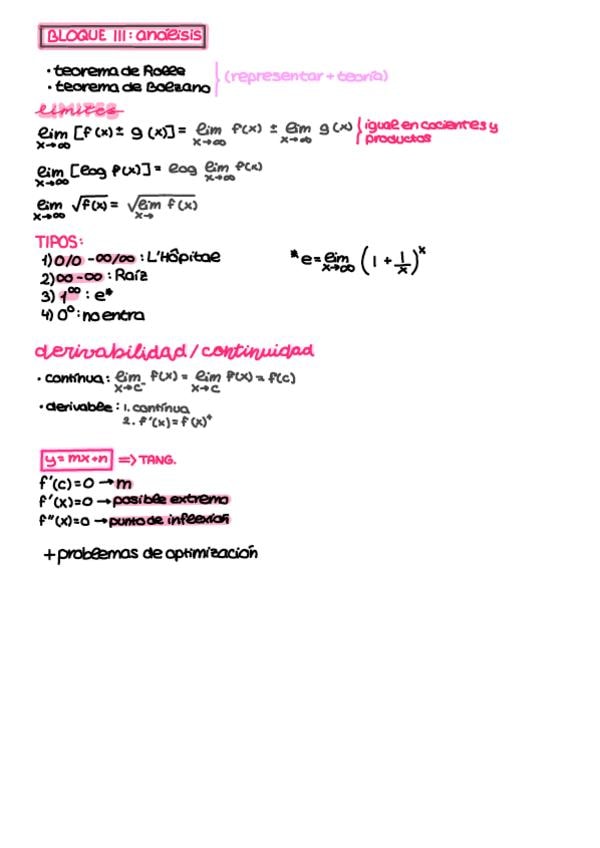 BLOQUE III: análisis
· teorema de Rolle
· teorema de Bolzano
(representar + teoría)
límites
lim x→∞ [f(x) ± g(x)] = lim x→∞ f(x) ± lim x→∞ g(x)
igual en cocientes y
productos
lim x→∞ [log f(x)] = log lim x→∞ f(x)
lim x→∞ √f(x) = √lim x→ f(x)
TIPOS:
1) 0/0 - ∞/∞ : L'Hôpital
2) ∞ - ∞ : Raíz
3) 1^∞ : e*
4) 0⁰ : no entra
*e = lim x→∞ (1 + 1/x)^x
derivabilidad / continuidad
· contínua: lim x→c⁻ f(x) = lim x→c f(x) = f(c)
· derivable: 1. contínua
2. f'(x) = f(x)⁺
y = mx+n => TANG.
f'(c)=0 → m
f'(x)=0 → posible extremo
f''(x)=0 → punto de inflexión
+ problemas de optimización